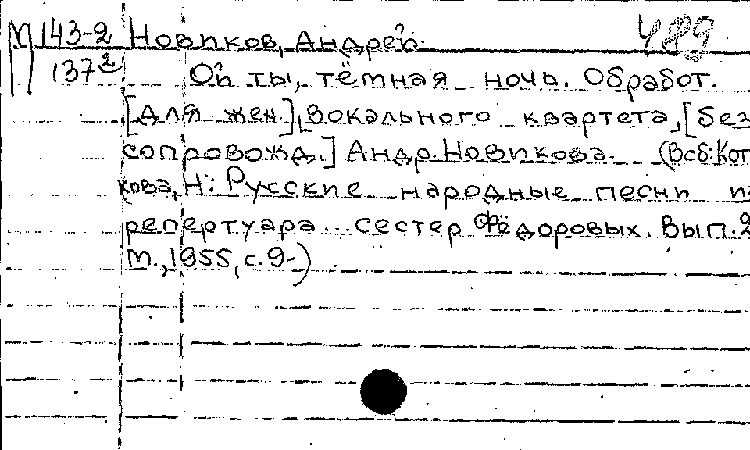 М 143-2 Новиков, Андрей. 489
137² Ой ты, тёмная ночь. Обработ.
[для жен.] вокального квартета, [без
сопровожд.] Андр. Новикова. (В сб.: Кот
кова, Н: Русские народные песни из
репертуара.. сестер Фёдоровых. Вып. 2
М., 1955, с. 9-)